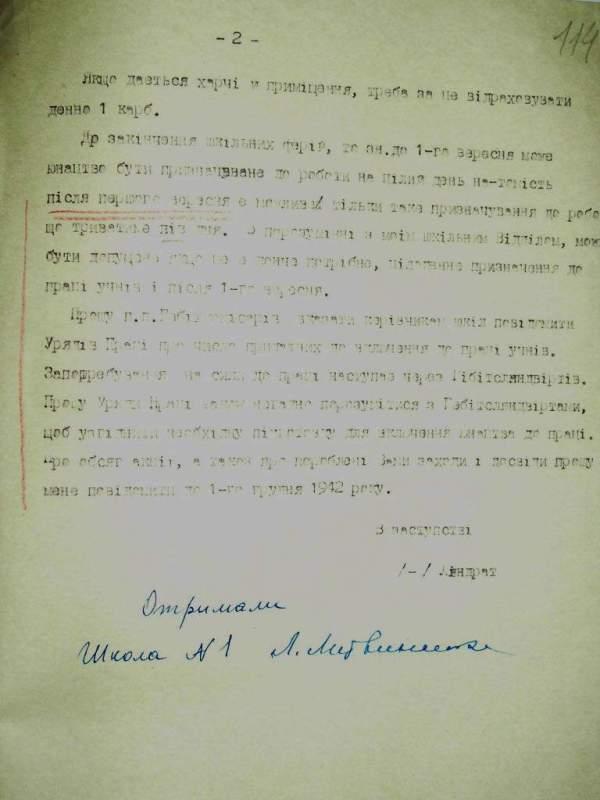 - 2 -
114
Якщо дається харчі й приміщення, треба за це відраховувати
денно 1 карб.
До закінчення шкільних ферій, то зн. до 1-го вересня може
юнацтво бути призначуване до роботи на цілий день на-томість
після першого вересня є можливе тільки таке призначування до робо
що триватиме пів дня. В порозумінні з моїм шкільним Відділом, мож
бути допущене якщо це є конче потрібно, цілоденне призначення до
праці учнів і після 1-го вересня.
Прошу п.п. вказати керівникам шкіл повідомити
Урядів Праці про число придатних до включення до праці учнів.
Запотребування на силу до праці наступає через Гебітсляндвіртів.
Прошу Уряди Праці негайно порозумітися з Гебітсляндвіртами,
щоб узгіднити необхідну підготовку для включення юнацтва до праці.
Про обсяг акції, а також про пороблені Вами заходи і досвіди прошу
мене повідомити до 1-го грудня 1942 року.
В заступстві
/-/ Кіндрат
Отримали
Школа N1 Л. Литвиненко